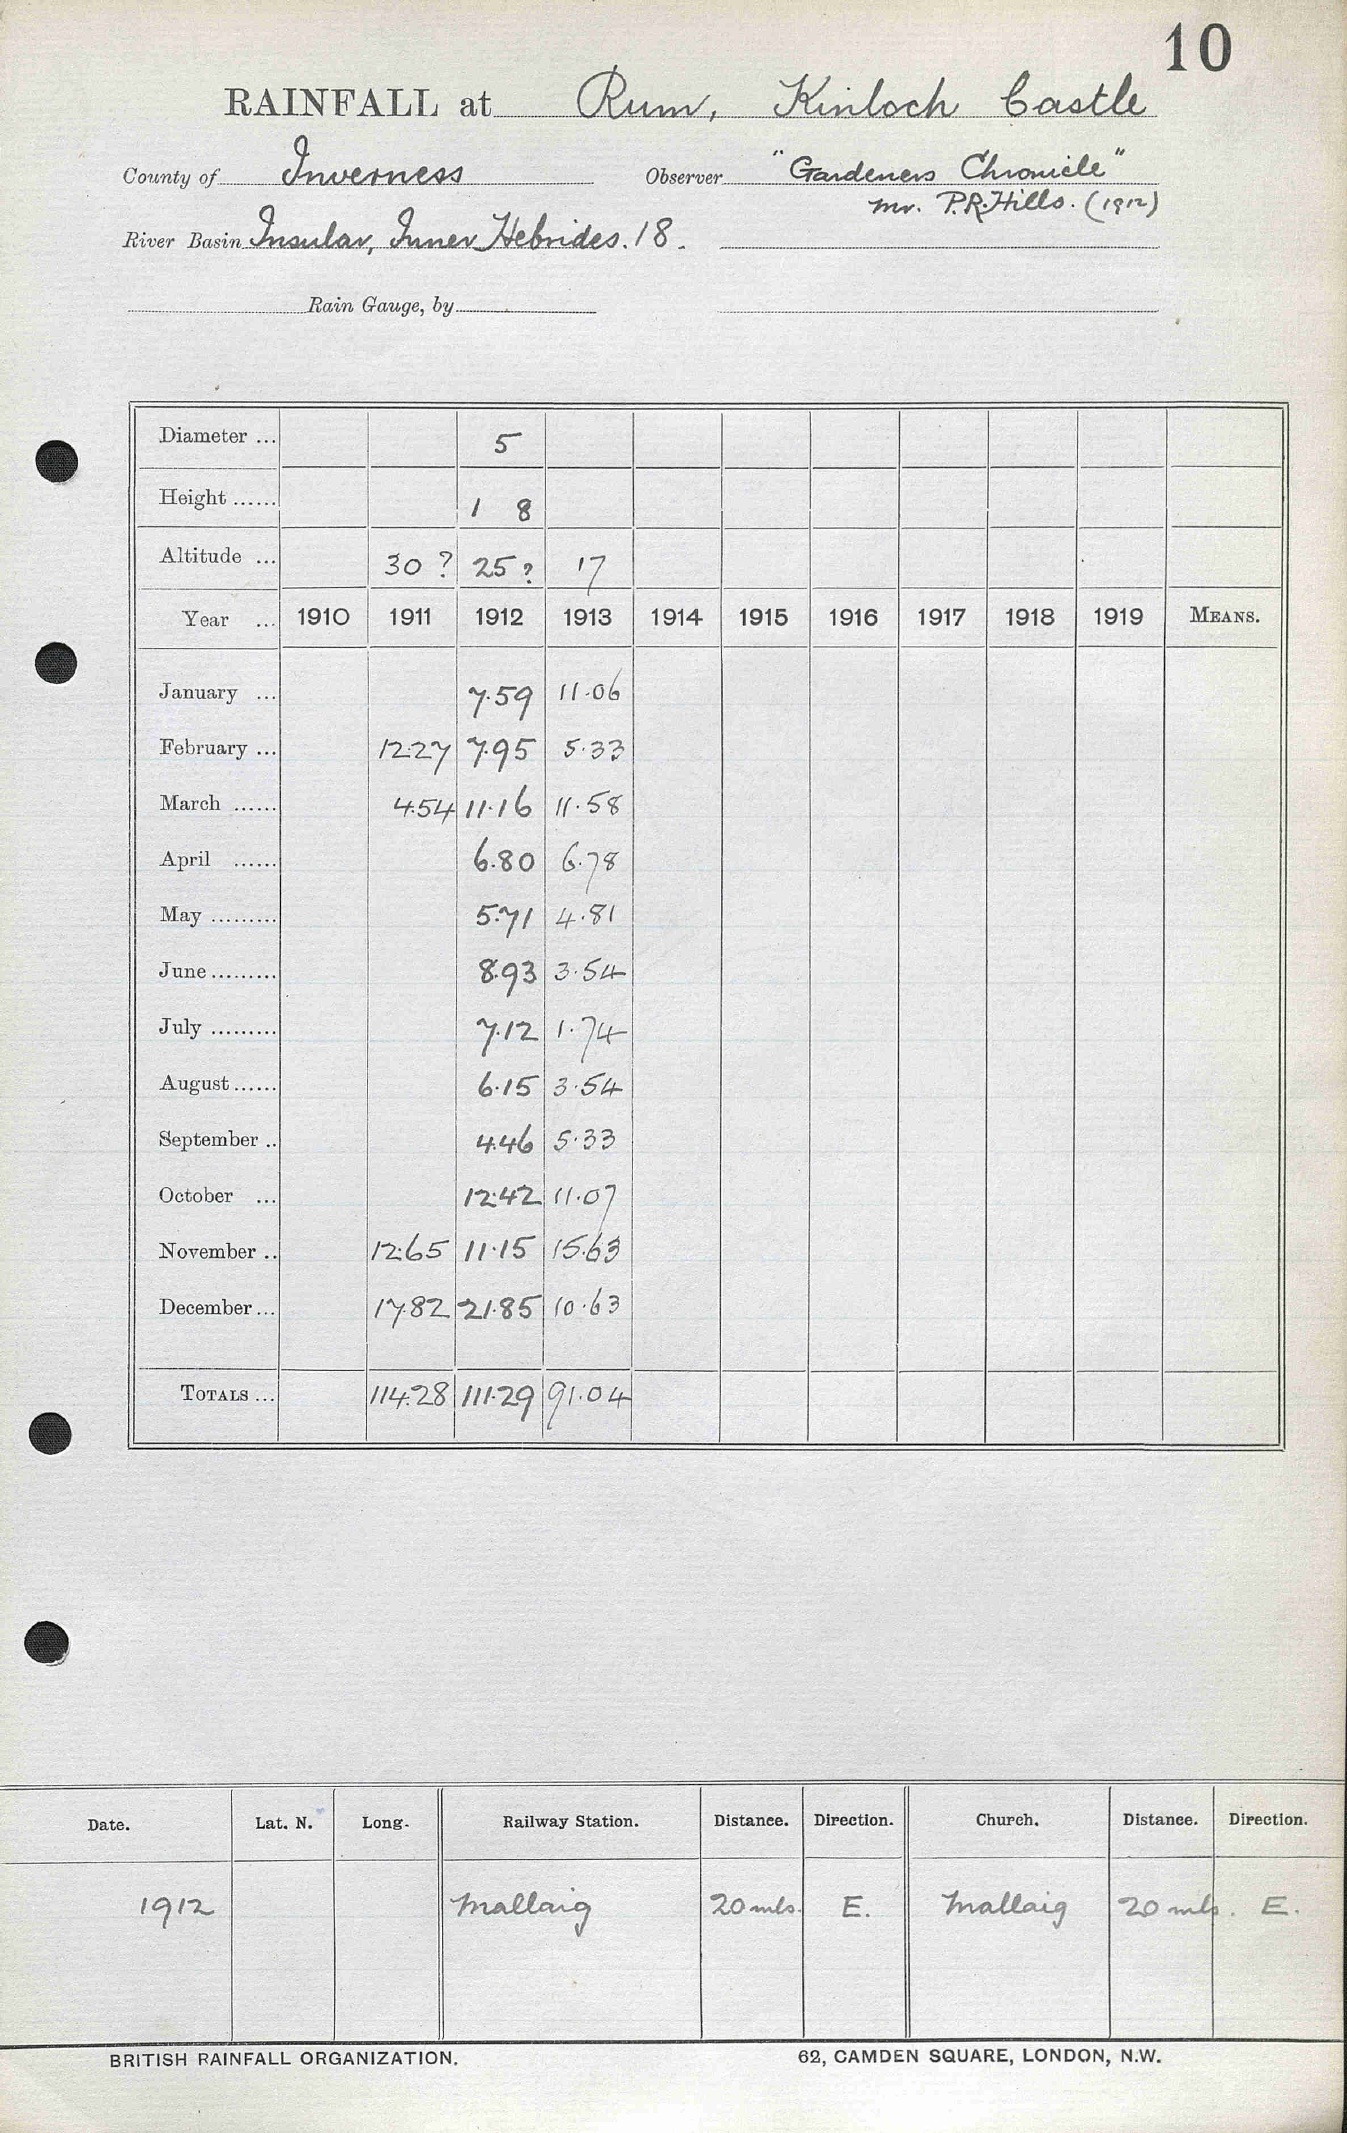 10
RAINFALL at Rum, Kinloch Castle
County of Inverness Observer "Gardeners Chronicle"
Mr. P.R. Hills. (1912)
River Basin Insular, Inner Hebrides. 18.
Rain Gauge, by
Diameter ... 5
Height ...... 1 8
Altitude ... 30 ? 25 ? 17
Year ... 1910 1911 1912 1913 1914 1915 1916 1917 1918 1919 MEANS.
January ... 7.59 11.06
February ... 12.27 7.95 5.33
March ...... 4.54 11.16 11.58
April ...... 6.80 6.78
May ......... 5.71 4.81
June ......... 8.93 3.54
July ......... 7.12 1.74
August ...... 6.15 3.54
September .. 4.46 5.33
October ... 12.42 11.07
November .. 12.65 11.15 15.63
December ... 17.82 21.85 10.63
TOTALS ... 114.28 111.29 91.04
Date. Lat. N. Long. Railway Station. Distance. Direction. Church. Distance. Direction.
1912 Mallaig 20 mls. E. Mallaig 20 mls. E.
BRITISH RAINFALL ORGANIZATION. 62, CAMDEN SQUARE, LONDON, N.W.